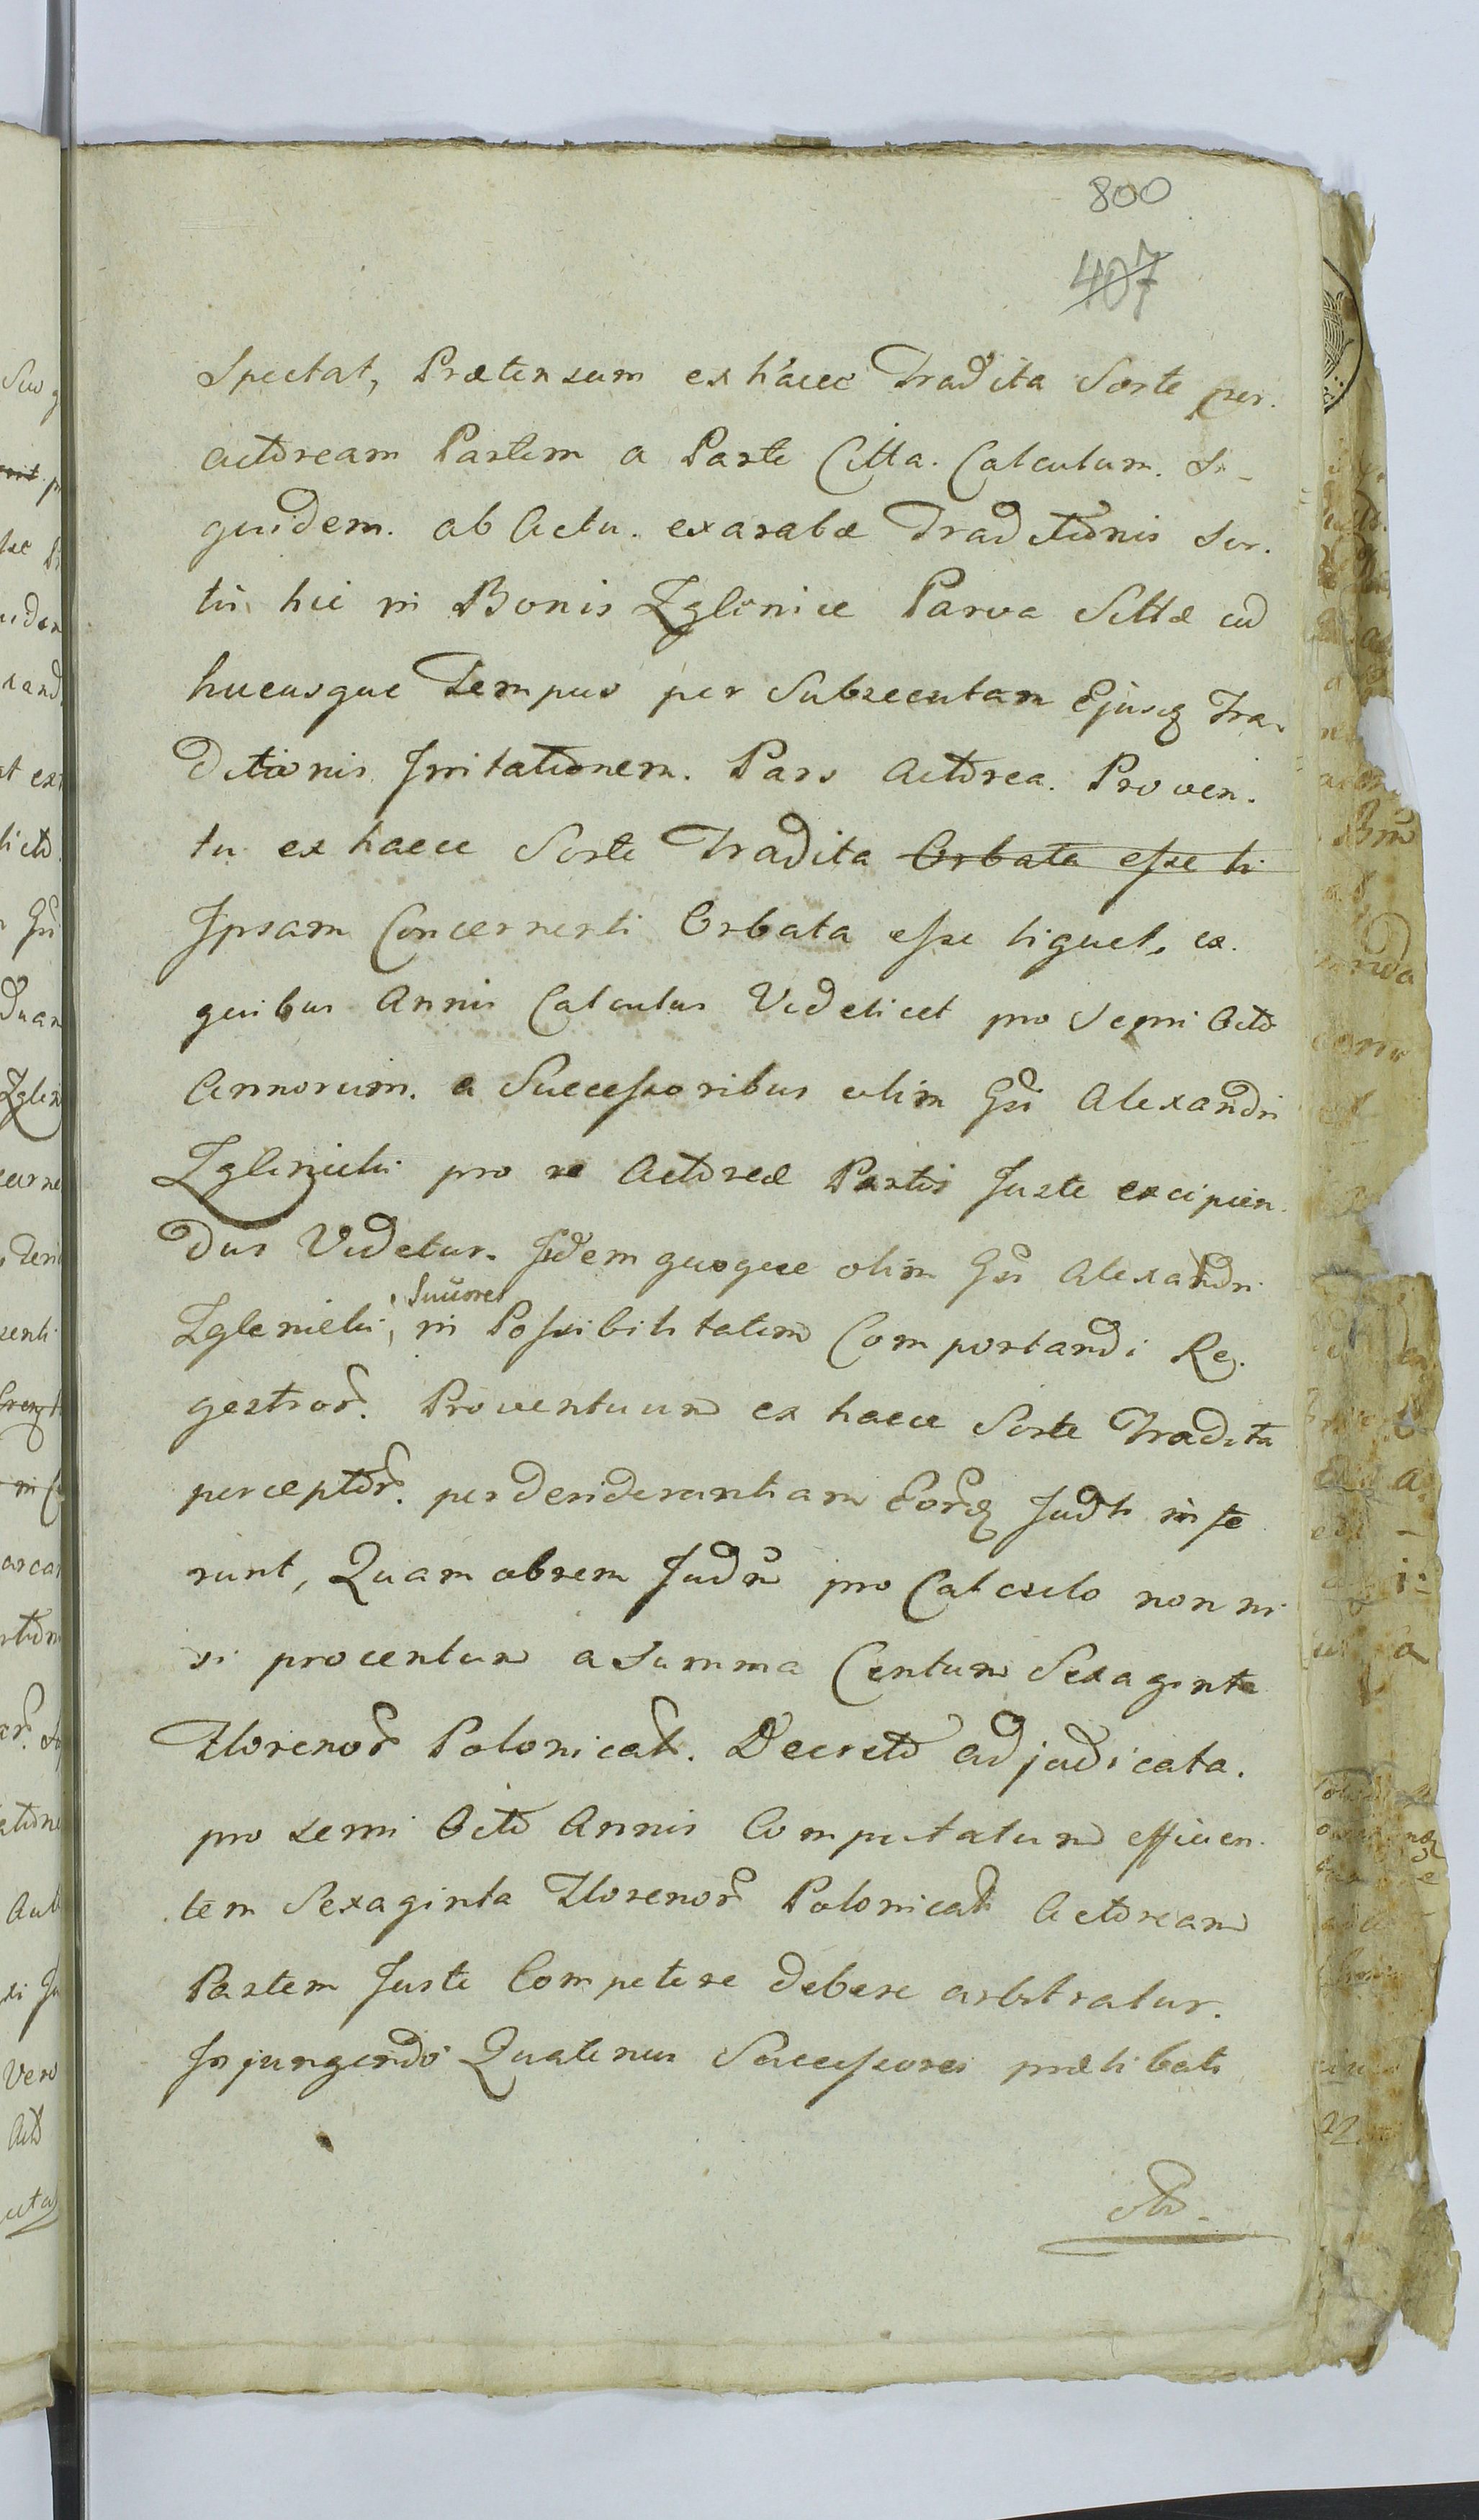 800
407
Spectat, Prætensum ex haece Tradita Sorte per.
actoream Partem a Parte Citta. Calculum. Si-
quidem. ab Actu. exaratæ Traditionis Sor-
tis hic in Bonis Zglinice Parva Sittæ ad
hucusque Tempus per Subsecutam Ejusq Tra-
ditionis Irritationem. Pars Actorea. Proven-
tu ex haece Sorte Tradita Orbata esse li
Ipsam Concernenti Orbata esse liquet, ex.
quibus Annis Calculus Videlicet pro Semi Octo
Annorum. a Successoribus olim Gsi Alexandri
Zglinicki pro re Actoreæ Partis Juste excipien-
dus Videtur. Idem quoque olim Gsi Alexandri
Succores
Zglenicki, in Possibilitatem Comportandi Re-
gestror. Proventuum ex haece Sorte Tradita
perceptor. per desiderantiam Eorq Judti
runt, Quamobrem Judm pro Calculo non ni
si procentum a Summa Centum Sexaginta
Florenor Polonical. Decreto adjudicata.
pro semi Octo Annis Computatum efficien-
tem Sexaginta Florenor Polonical Actoream
Partem Juste Competere debere arbitratur.
Injungendo Quatenus Successores prælibati
olim